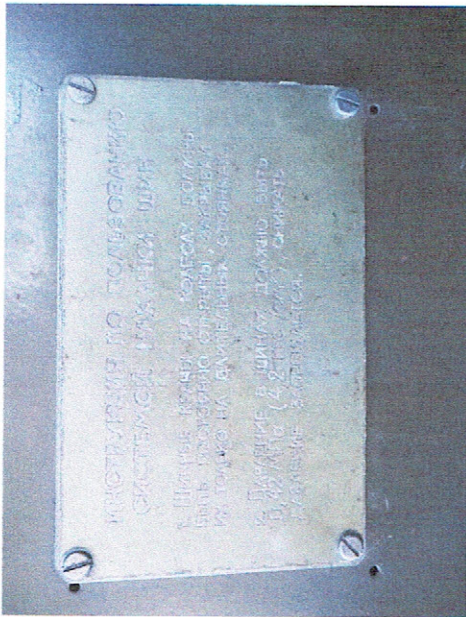 ИНСТРУКЦИЯ ПО ПОЛЬЗОВАНИЮ
СИСТЕМОЙ НАКАЧКИ ШИН
1. Шинные краны на колесах должны
быть постоянно открыты, закрывай
их только на длительных стоянках.
2. Давление в шинах должно быть
0,42 МПа (4,2 кгс/см²), снижать
давление запрещается.